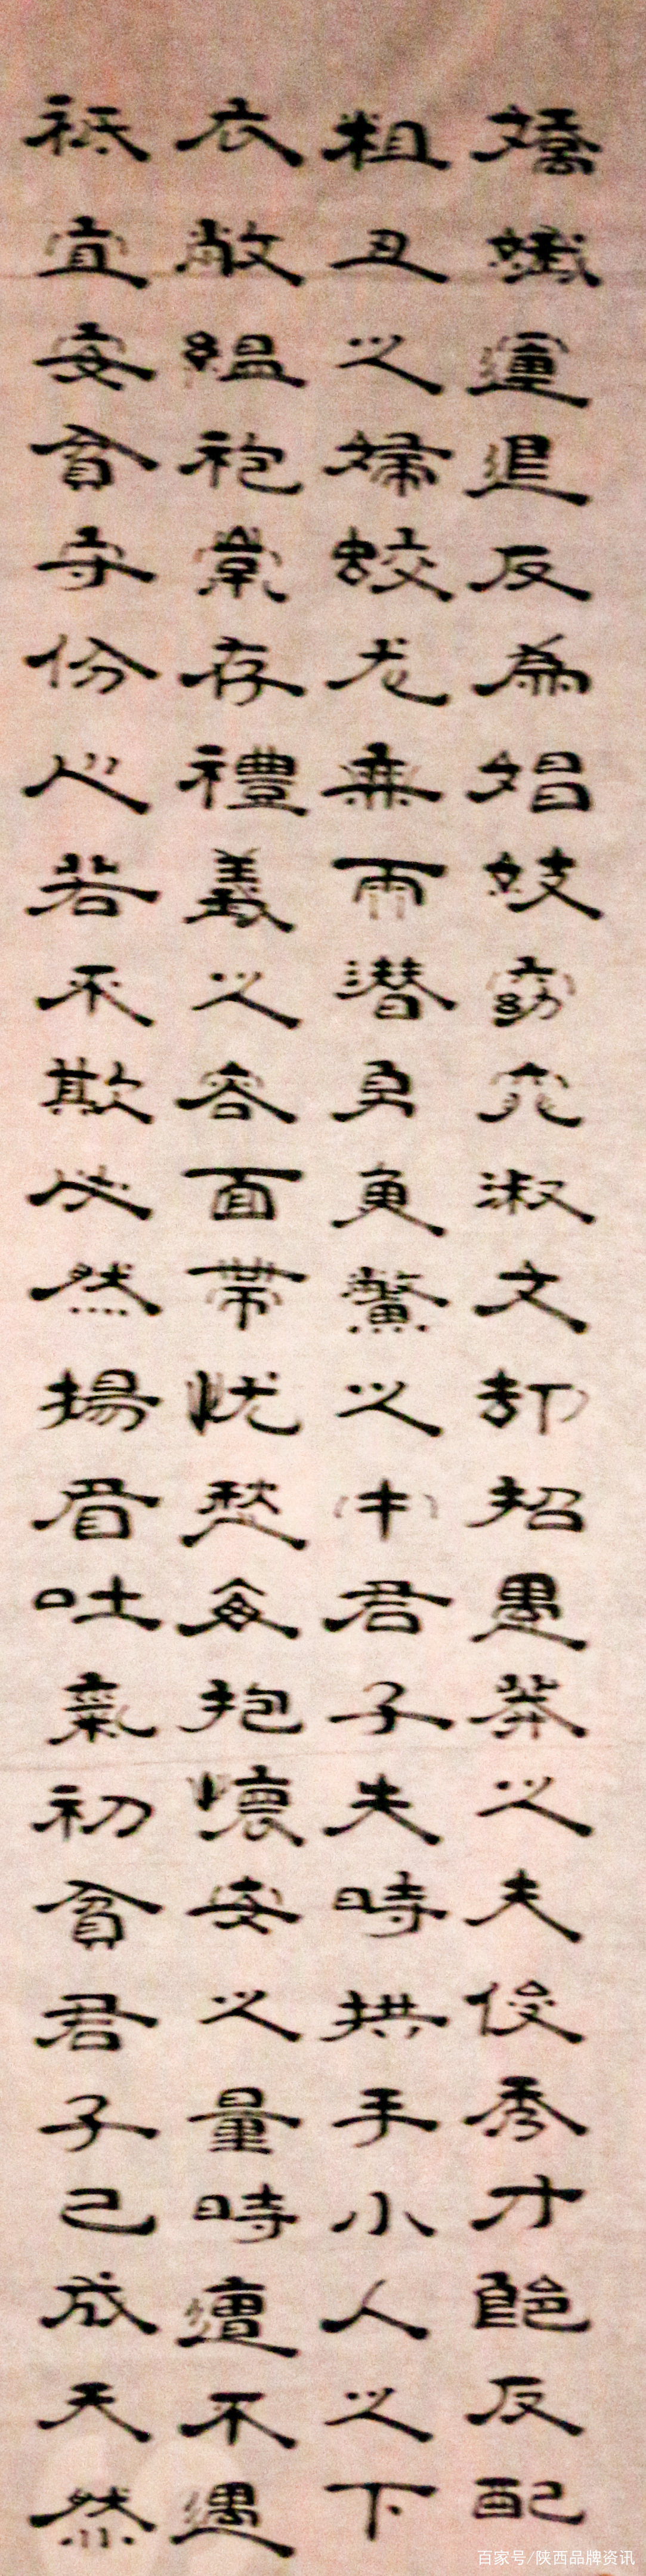 娇孅運退反為娼妓窈窕淑文却招愚莽以夫俊秀才能反配
粗丑以婦蛟龙無雨潜身魚鱉以中君子失時拱手小人以下
衣敝緼袍常存禮義以容面带忧愁每抱懷安以量時遭不遇
祗宜安貧守份心若不欺必然揚眉吐氣初貧君子已成天然
百家号/陕西品牌资讯